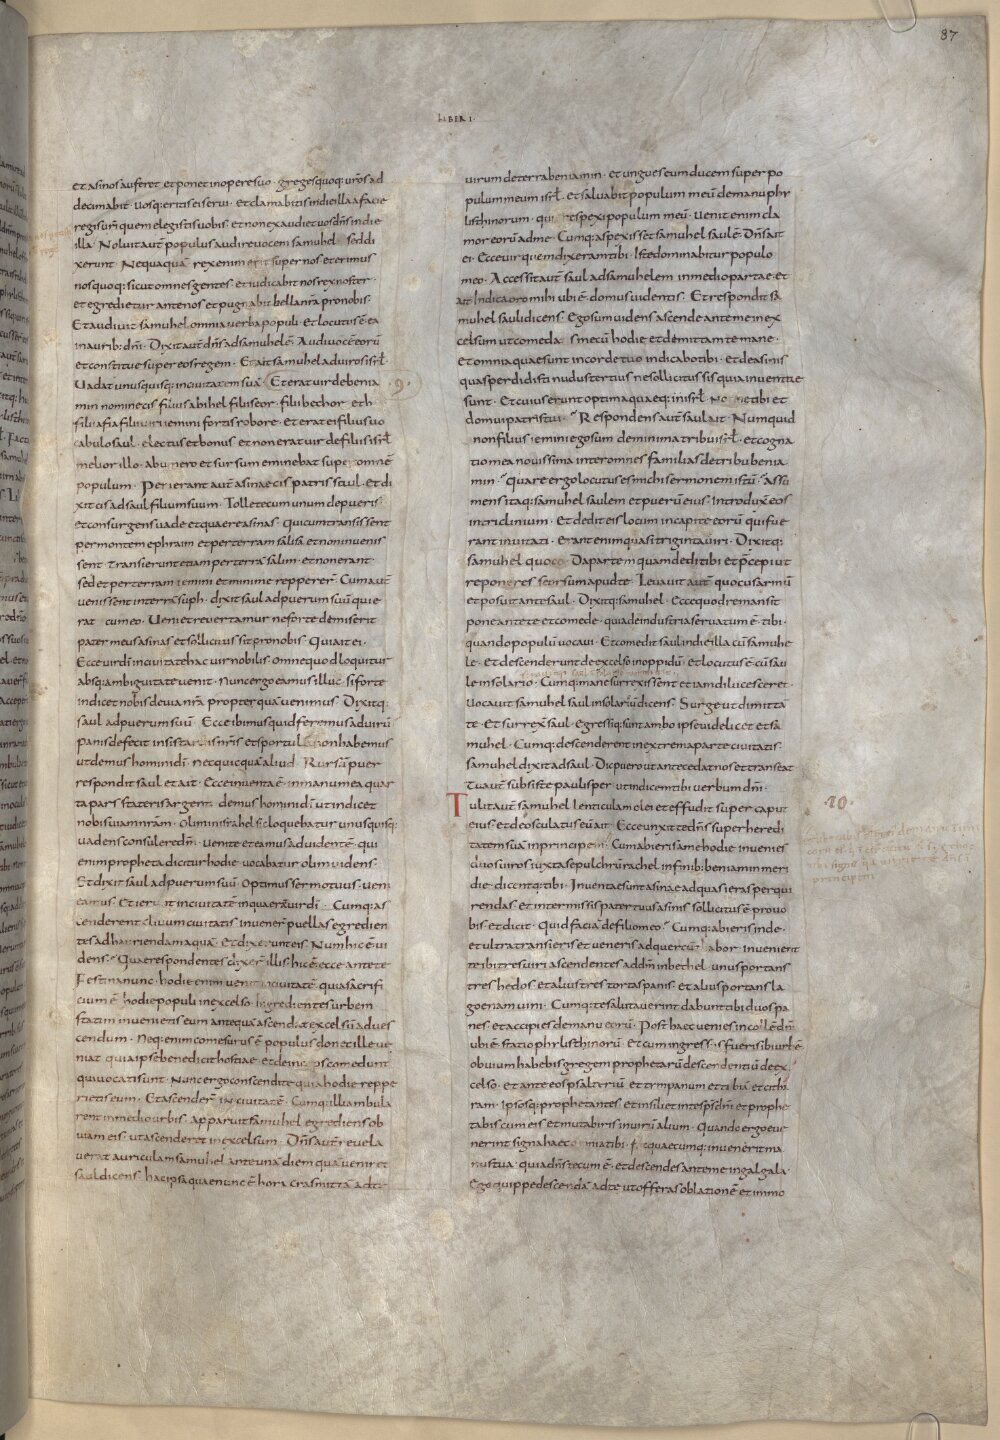 87
LIBER I
et asinos auferet et ponet in opere suo · greges quoq: uros ad
decimabit · uosq: eritis ei serui · Et clamabitis in die illa a facie
regis uri quem elegistis uobis · et non exaudiet uos dns in die
illa · Noluit aut populus audire uocem samuhel sed di
xerunt · Nequaquā rex enim erit super nos et erimus
nos quoq: sicut omnes gentes · et iudicabit nos rex noster ·
et egredietur ante nos et pugnabit bella nra pro nobis ·
Et audiuit samuhel omnia uerba populi · et locutus ē ea
in aurib: dni · Dixit aut dns ad samuhelē · Audi uocē eorū
et constitue super eos regem · Et ait samuhel ad uiros isrl
Uadat unusquisq: in ciuitatem suā · Et erat uir de benia
9
min nomine cis filius abihel filii seor · filii bechor · et h
filii afia filii uiri iemini fortis robore · Et erat ei filius uo
cabulo saul · electus et bonus et non erat uir de filiis isrl
melior illo · ab umero et sursum eminebat super omnē
populum · Perierant aut asinae cis patris saul · Et di
xit cis ad saul filium suum · Tolle tecum unum de pueris ·
et consurgens uade et quaere asinas · Qui cum transissent
per montem ephraim et per terram salisa · et non inuenis
sent · transierunt etiam per terrā salim · et non erant ·
sed et per terram iemini et minime reppererr̄ · Cum aut
uenissent in terrā suph · dixit saul ad puerum suū qui e
rat cum eo · Ueni et reuertamur ne forte dimiserit
pater meus asinas et sollicitus sit pro nobis · Qui ait ei ·
Ecce uir di in ciuitate hac uir nobilis · omne quod loquitur
absq: ambiguitate uenit · nunc ergo eamus illuc · si forte
indicet nobis de uia nrā propter quā uenimus · Dixitq:
saul ad puerum suū · Ecce ibimus quid feremus ad uirū
panis defecit in sistarciis nris · et sportulā non habemus
ut demus homini di · nec quicquā aliud · Rursū puer
respondit saul et ait · Ecce inuenta ē in manu mea quar
ta pars stateris argenti · demus homini di ut indicet
nobis uiam nram · Olim in israhel sic loquebatur unusquisq:
uadens consulere dm · Uenite eamus ad uidente · qui
enim propheta dicitur hodie · uocabatur olim uidens ·
Et dixit saul ad puerum suū · Optimus sermo tuus · ueni
eamus · Et ierunt in ciuitatē in qua erat uir di · Cumq: as
cenderent cliuum ciuitatis · inuenerr̄ puellas egredien
tes ad hauriendam aquā · Et dixerunt eis · Num hic ē ui
dens · Quae respondentes dixer illis · hic ē · ecce ante te
Festina nunc · hodie enim uenit in ciuitatē · quia sacrifi
cium ē hodie populi in excelso · Ingredientes urbem
statim inuenietis eum antequā ascendat excelsū ad ues
cendum · Neq: enim comesurus ē populus donec ille ue
niat · quia ipse benedicit hostiae · et deinceps comedunt
qui uocati sunt · Nunc ergo conscendite quia hodie reppe
rietis eum · Et ascenderr̄ in ciuitatē · Cumq: illi ambula
rent in medio urbis · apparuit samuhel egrediens ob
uiam eis · ut ascenderet in excelsum · Dns aut reuela
uerat auriculam samuhel ante unā diem quā ueniret
saul dicens · hac ipsa quae nunc ē hora cras mittā ad te
uirum de terra beniamin · et ungues eum ducem super po
pulum meum isrl · et saluabit populum meū de manu phy
listhinorum · quia respexi populum meū · uenit enim cla
mor eorū ad me · Cumq: aspexisset samuhel saulē · Dns ait
ei · Ecce uir quem dixeram tibi · Iste dominabitur populo
meo · Accessit aut saul ad samuhelem in medio portae · et
ait · Indica oro mihi ubi ē domus uidentis · Et respondit sa
muhel sauli dicens · Ego sum uidens ascende ante me in ex
celsum ut comedas mecū hodie et demittam te mane ·
Et omnia quae sunt in corde tuo indicabo tibi · et de asinis
quas perdidisti nudustertius ne sollicitus sis quia inuentae
sunt · Et cuius erunt optima quaeq: in isrl · Nonne tibi et
domui patris tui · Respondens aut saul ait · Numquid
non filius iemini ego sum de minima tribu isrl · et cogna
tio mea nouissima inter omnes familias de tribu benia
min · Quare ergo locutus es michi sermonem istū · Assu
mens itaq: samuhel saulem et puerū eius · introduxit eos
in triclinium · Et dedit eis locum in capite eorū qui fue
rant inuitati · Erant enim quasi triginta uiri · Dixitq:
samuhel quoco · Da partem quam dedi tibi et pcepi ut
reponeres seorsum apud te · Leuauit aut quocus armū
et posuit ante saul · Dixitq: samuhel · Ecce quod remansit
pone ante te et comede · quia de industria seruatum ē tibi ·
quando populū uocaui · Et comedit saul in die illa cū samuhe
le · Et descenderunt de excelso in oppidū · et locutus ē cū sau
le in solario · Cumq: mane surrexissent et iam dilucesceret ·
Uocauit samuhel saul in solariū dicens · Surge ut dimittā
te · Et surrex̄ saul · Egressiq: sunt ambo ipse uidelicet et sa
muhel · Cumq: descenderent in extrema parte ciuitatis ·
samuhel dixit ad saul · Dic puero ut antecedat nos et transeat
Tu aut subsiste paulisper · ut indicem tibi uerbum dni ·
Tulit aut samuhel lenticulam olei et effudit super caput
10
eius · et deosculatus eū ait · Ecce unxit te dns super heredi
tatem suā in principem · Cum abieris a me hodie inuenies
duos uiros iuxta sepulchrū rachel in finib: beniamin meri
die · dicentq: tibi · Inuentae sunt asinae ad quas ieras perqui
rendas · et intermissis pater tuus asinis sollicitus ē pro uo
bis et dicit · Quid faciā de filio meo · Cumq: abieris inde ·
et ultra transieris et ueneris ad quercū thabor · inuenient
te ibi tres uiri ascendentes ad dm in bethel · unus portans
tres hedos · et alius tres tortas panis · et alius portans la
goenam uini · Cumq: te salutauerint dabunt tibi duos pa
nes · et accipies de manu eorū · Post haec uenies in collē dni
ubi ē statio phylisthinorū · Et cum ingressus fueris ibi urbē
obuium habebis gregem prophetarū descendentiū de ex
celso · et ante eos psalteriū · et tympanum et tibiā · et citha
ram · ipsosq: prophetantes · et insiliet in te sps dni et prophe
tabis cum eis et mutaberis in uirū alium · Quando ergo eue
nerint signa haec omnia tibi · fac quaecumq: inuenerit ma
nus tua · quia dns tecum ē · et descendes ante me in galgala ·
Ego quippe descendā ad te ut offeras oblationē et immo